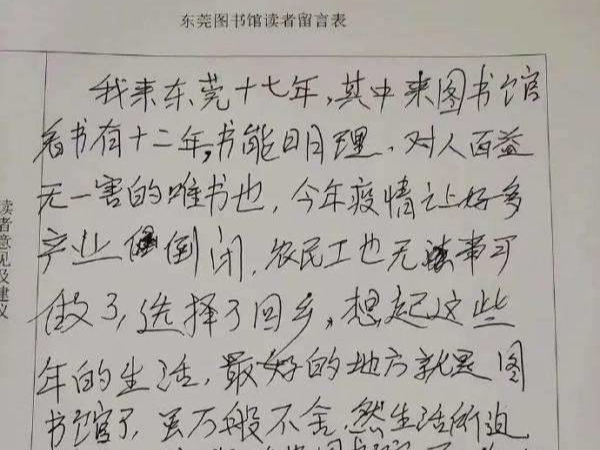 东莞图书馆读者留言表
读者意见及建议
我来东莞十七年,其中来图书馆
看书有十二年,书能明理,对人百益
无一害的唯书也,今年疫情让好多
产业倒闭,农民工也无事可
做了,选择了回乡,想起这些
年的生活,最好的地方就是图
书馆了,虽万般不舍,然生活所迫